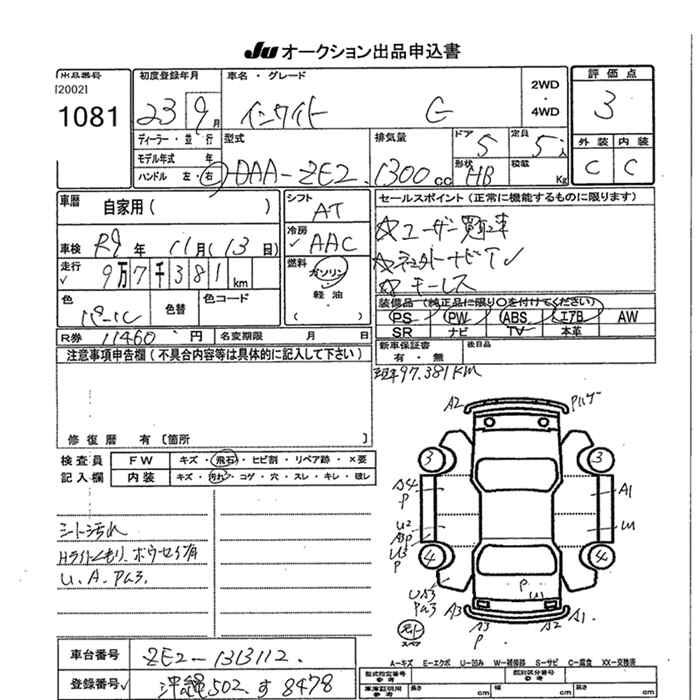 Ju オークション出品申込書
出品番号
[2002]
1081
初度登録年月
23 9月
車名・グレード
インサイト G
2WD
・
4WD
評価点
3
外装 内装
C C
ディーラー・並行
モデル年式 年
ハンドル 左・右
型式
DAA-ZE2
排気量
1300cc
ドア
5
定員
5人
形状
HB
積載
Kg
車歴 自家用( )
車検 R9年 11月(13日)
走行 9万7千381km
色 パール
色替
色コード
シフト
AT
冷房
AAC
燃料
ガソリン
・
軽油
( )
セールスポイント(正常に機能するものに限ります)
☆ユーザー買取車
ナビTV
☆キーレス
装備品(純正品に限り○を付けてください)
PS PW ABS エアB AW
SR ナビ TV 本革
R券 11460円
名変期限 月 日
新車保証書
有・無
後日品
97.381KM
注意事項申告欄(不具合内容等は具体的に記入して下さい)
修復歴 有〔箇所 〕
検査員
記入欄
FW キズ・飛石・ヒビ割・リペア跡・×要
内装 キズ・汚れ・コゲ・穴・スレ・キレ・破レ
シート汚れ
Hライトくもり、ホワセン有
U.A.Pムラ.
A2
3 3
A4
P
A1
U2
U3
P
U
4 4
P
U1
UA3
Pムラ
A3
A3
P
A2
A1
スペア
A-キズ E-エクボ U-凹み W-補修跡 S-サビ C-腐食 XX-交換済
車台番号 ZE2-1313112.
登録番号 沖縄502 す8478
型式指定番号
参考
類別区分番号
参考
車庫証明用
参考
長さ cm
幅 cm
高さ cm